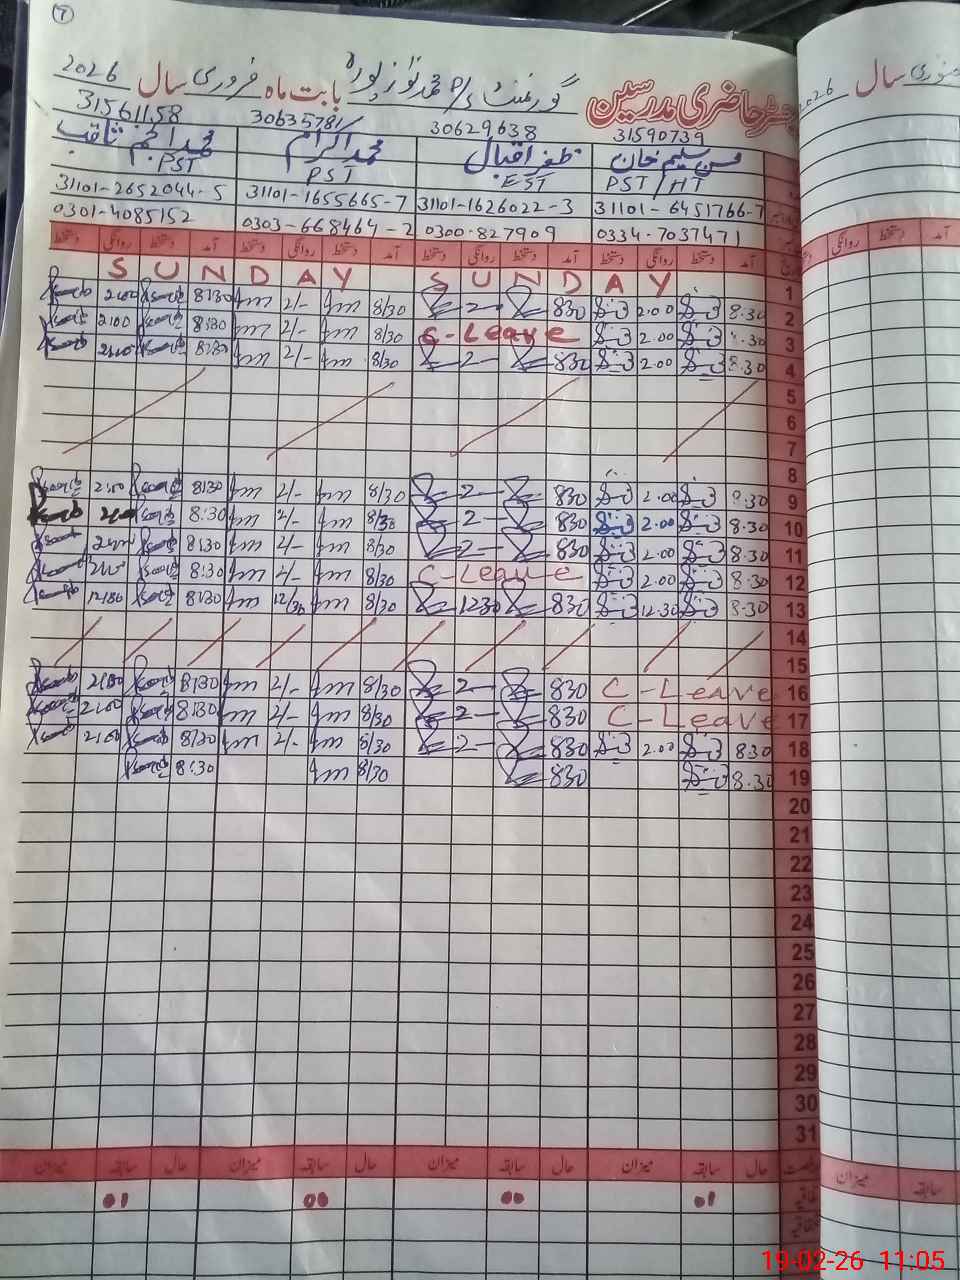 7
رجسٹر حاضری مدرسین گورنمنٹ P/S محمد نواز پورہ بابت ماہ فروری سال 2026
31590739 30629638 30635781 31561158
محسن سلیم خان ظفر اقبال محمد اکرام محمد انجم ثاقب
PST/HT EST PST PST
31101-6451766-7 31101-1626022-3 31101-1655665-7 31101-2652044-5
0334-7037471 0300-827909 0303-668464-2 0301-4085152
آمد دستخط روانگی دستخط آمد دستخط روانگی دستخط آمد دستخط روانگی دستخط آمد دستخط روانگی دستخط
SUNDAY SUNDAY 1
2:00 8:30 2/- 8/30 2 830 2.00 8.30 2
2:00 8:30 2/- 8/30 C-Leave 2.00 8.30 3
2:00 8:30 2/- 8/30 2 830 2.00 8.30 4
5
6
7
8
2:00 8:30 2/- 8/30 2 830 2.00 8.30 9
8:30 2/- 8/30 2 830 2.00 8.30 10
8:30 2/- 8/30 2 830 2.00 8.30 11
8:30 2/- 8/30 C-Leave 2.00 8.30 12
12:30 8:30 12/30 8/30 1230 830 12.30 8.30 13
14
15
2:00 8:30 2/- 8/30 2 830 C-Leave 16
2:00 8:30 2/- 8/30 2 830 C-Leave 17
2:00 8:30 2/- 8/30 2 830 2.00 830 18
8:30 8/30 830 8.30 19
20
21
22
23
24
25
26
27
28
29
30
31
رخصت حال سابقہ میزان حال سابقہ میزان حال سابقہ میزان حال سابقہ میزان
اتفاقیہ 01 00 00 01
سال 2026
دستخط روانگی
سابقہ میزان
19-02-26 11:05